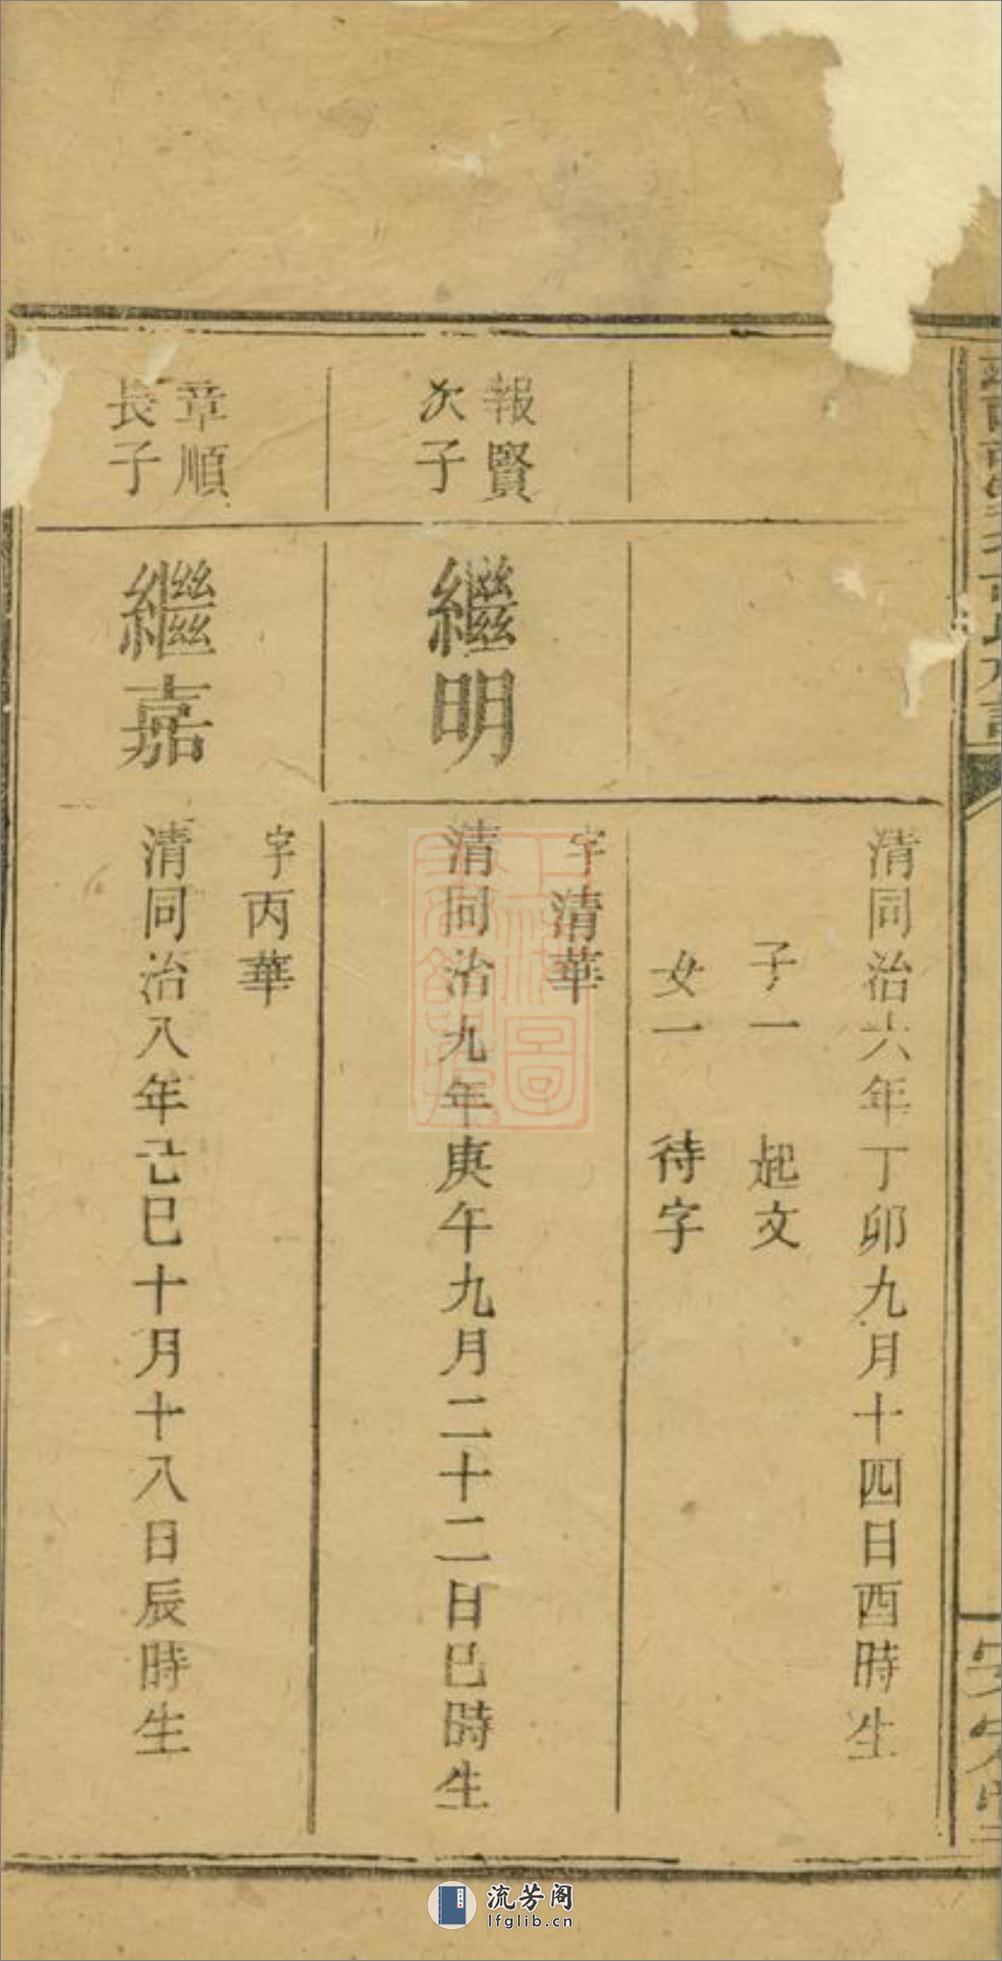 清同治六年丁卯九月十四日酉時生
子一　起文
女一　待字
報賢
次子
繼明
字清華
清同治九年庚午九月二十二日巳時生
章順
長子
繼嘉
字丙華
清同治八年己巳十月十八日辰時生
流芳阁
lfglib.cn